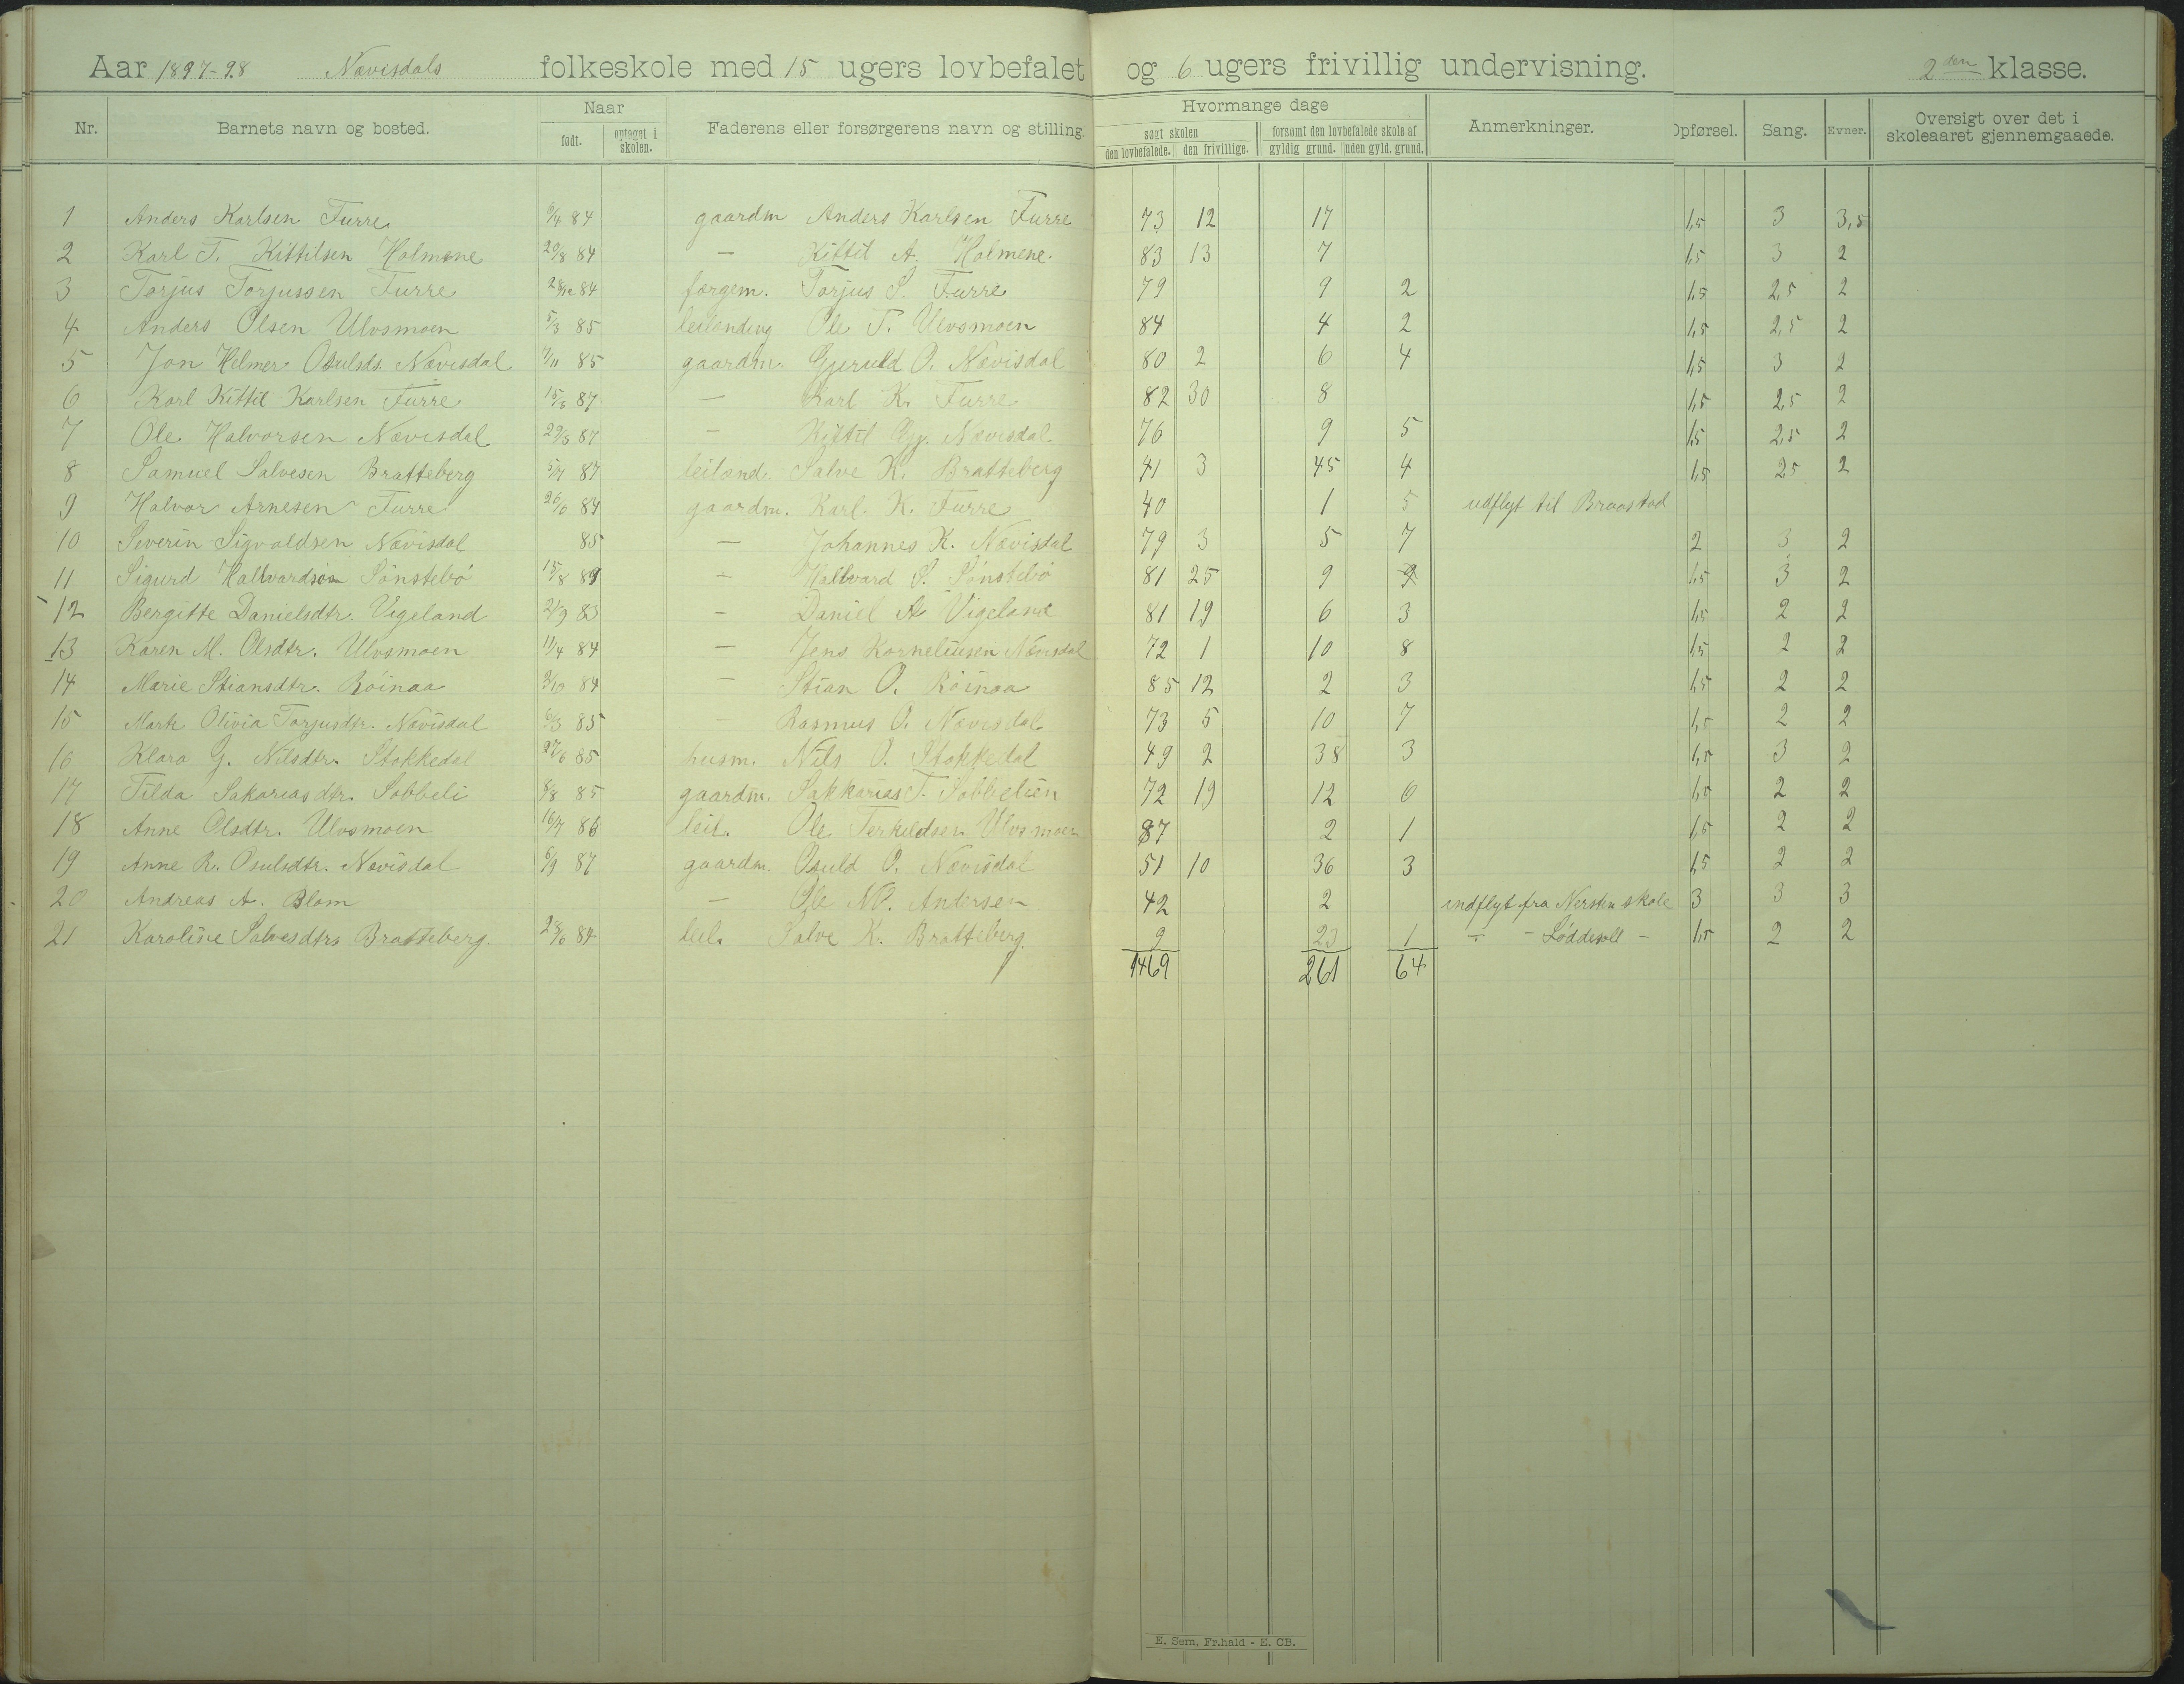 Aar 1897-98 Navisdals folkeskole med 15 ugers lovbefalet og 6 ugers frivillig undervisning. 2den klasse.
Nr. Barnets navn og bosted. Naar født. optaget i skolen. Faderens eller forsørgerens navn og stilling. Hvormange dage søgt skolen den lovbefalede. den frivillige. forsømt den lovbefalede skole af gyldig grund. uden gyld. grund. Anmerkninger. Opførsel. Sang. Evner. Oversigt over det i skoleaaret gjennemgaaede.
1 Anders Karlsen Furre 9/4 84 gaardm Anders Karlsen Furre 73 12 17 1,5 3 3,5
2 Karl T. Kittilsen Holmene 20/8 84 — Kittil A. Holmene. 83 13 7 1,5 3 2
3 Torjus Torjussen Furre 28/12 84 forgem. Torjus S. Furre 79 9 2 1,5 2,5 2
4 Anders Olsen Ulvsmoen 5/3 85 leilending Ole T. Ulvsmoen 84 4 2 1,5 2,5 2
5 Jon Helmer Osulsds. Navisdal 11/11 85 gaardm. Gjeruld O. Navisdal 80 2 6 4 1,5 3 2
6 Karl Kittil Karlsen Furre 15/3 87 — Karl K. Furre 82 30 8 1,5 2,5 2
7 Ole Halvorsen Navisdal 29/3 87 — Kittil Gj. Navisdal. 76 9 5 1,5 2,5 2
8 Samuel Salvesen Bratteberg 5/7 87 leiland. Salve K. Bratteberg 41 3 45 4 1,5 2,5 2
9 Halvor Arnesen Furre 26/10 84 gaardm. Karl K. Furre 40 1 5 udflyt til Braastad
10 Severin Sigvaldsen Navisdal 85 — Johannes K. Navisdal 79 3 5 7 2 3 2
11 Sigurd Hallvardsen Sönstebö 15/8 89 — Hallvard S. Sönstebö 81 25 9 1,5 3 2
12 Bergitte Danielsdtr. Vigeland 21/9 83 — Daniel A Vigeland 81 19 6 3 1,5 2 2
13 Karen M. Olsdtr. Ulvsmoen 11/4 84 — Jens Korneliusen Navisdal 72 1 10 8 1,5 2 2
14 Marie Stiansdtr. Röinaa 3/10 84 — Stian O. Röinaa 85 12 2 3 1,5 2 2
15 Marte Olivia Torjusdtr. Navisdal 6/3 85 — Rasmus O. Navisdal 73 5 10 7 1,5 2 2
16 Klara G. Nilsdtr. Stokkedal 27/6 85 husm. Nils O. Stokkedal 49 2 38 3 1,5 3 2
17 Tilda Sakariasdtr. Sobbeli 8/8 85 gaardm. Sakkarias T. Sobbelien 72 19 12 0 1,5 2 2
18 Anne Olsdtr. Ulvsmoen 16/7 86 leil. Ole Terkeldsen Ulvsmoen 87 2 1 1,5 2 2
19 Anne R. Osulsdtr. Navisdal 6/9 87 gaardm. Osuld O. Navisdal 51 10 36 3 1,5 2 2
20 Andreas A. Blom — Ole Andersen 42 2 indflyt fra Nersten skole 3 3 3
21 Karoline Salvesdtrs Bratteberg. 28/10 84 leil. Salve K. Bratteberg. 9 23 1 — — Løddesøl — 1,5 2 2
1469 261 64
E. Sem, Fr.hald - E. CB.